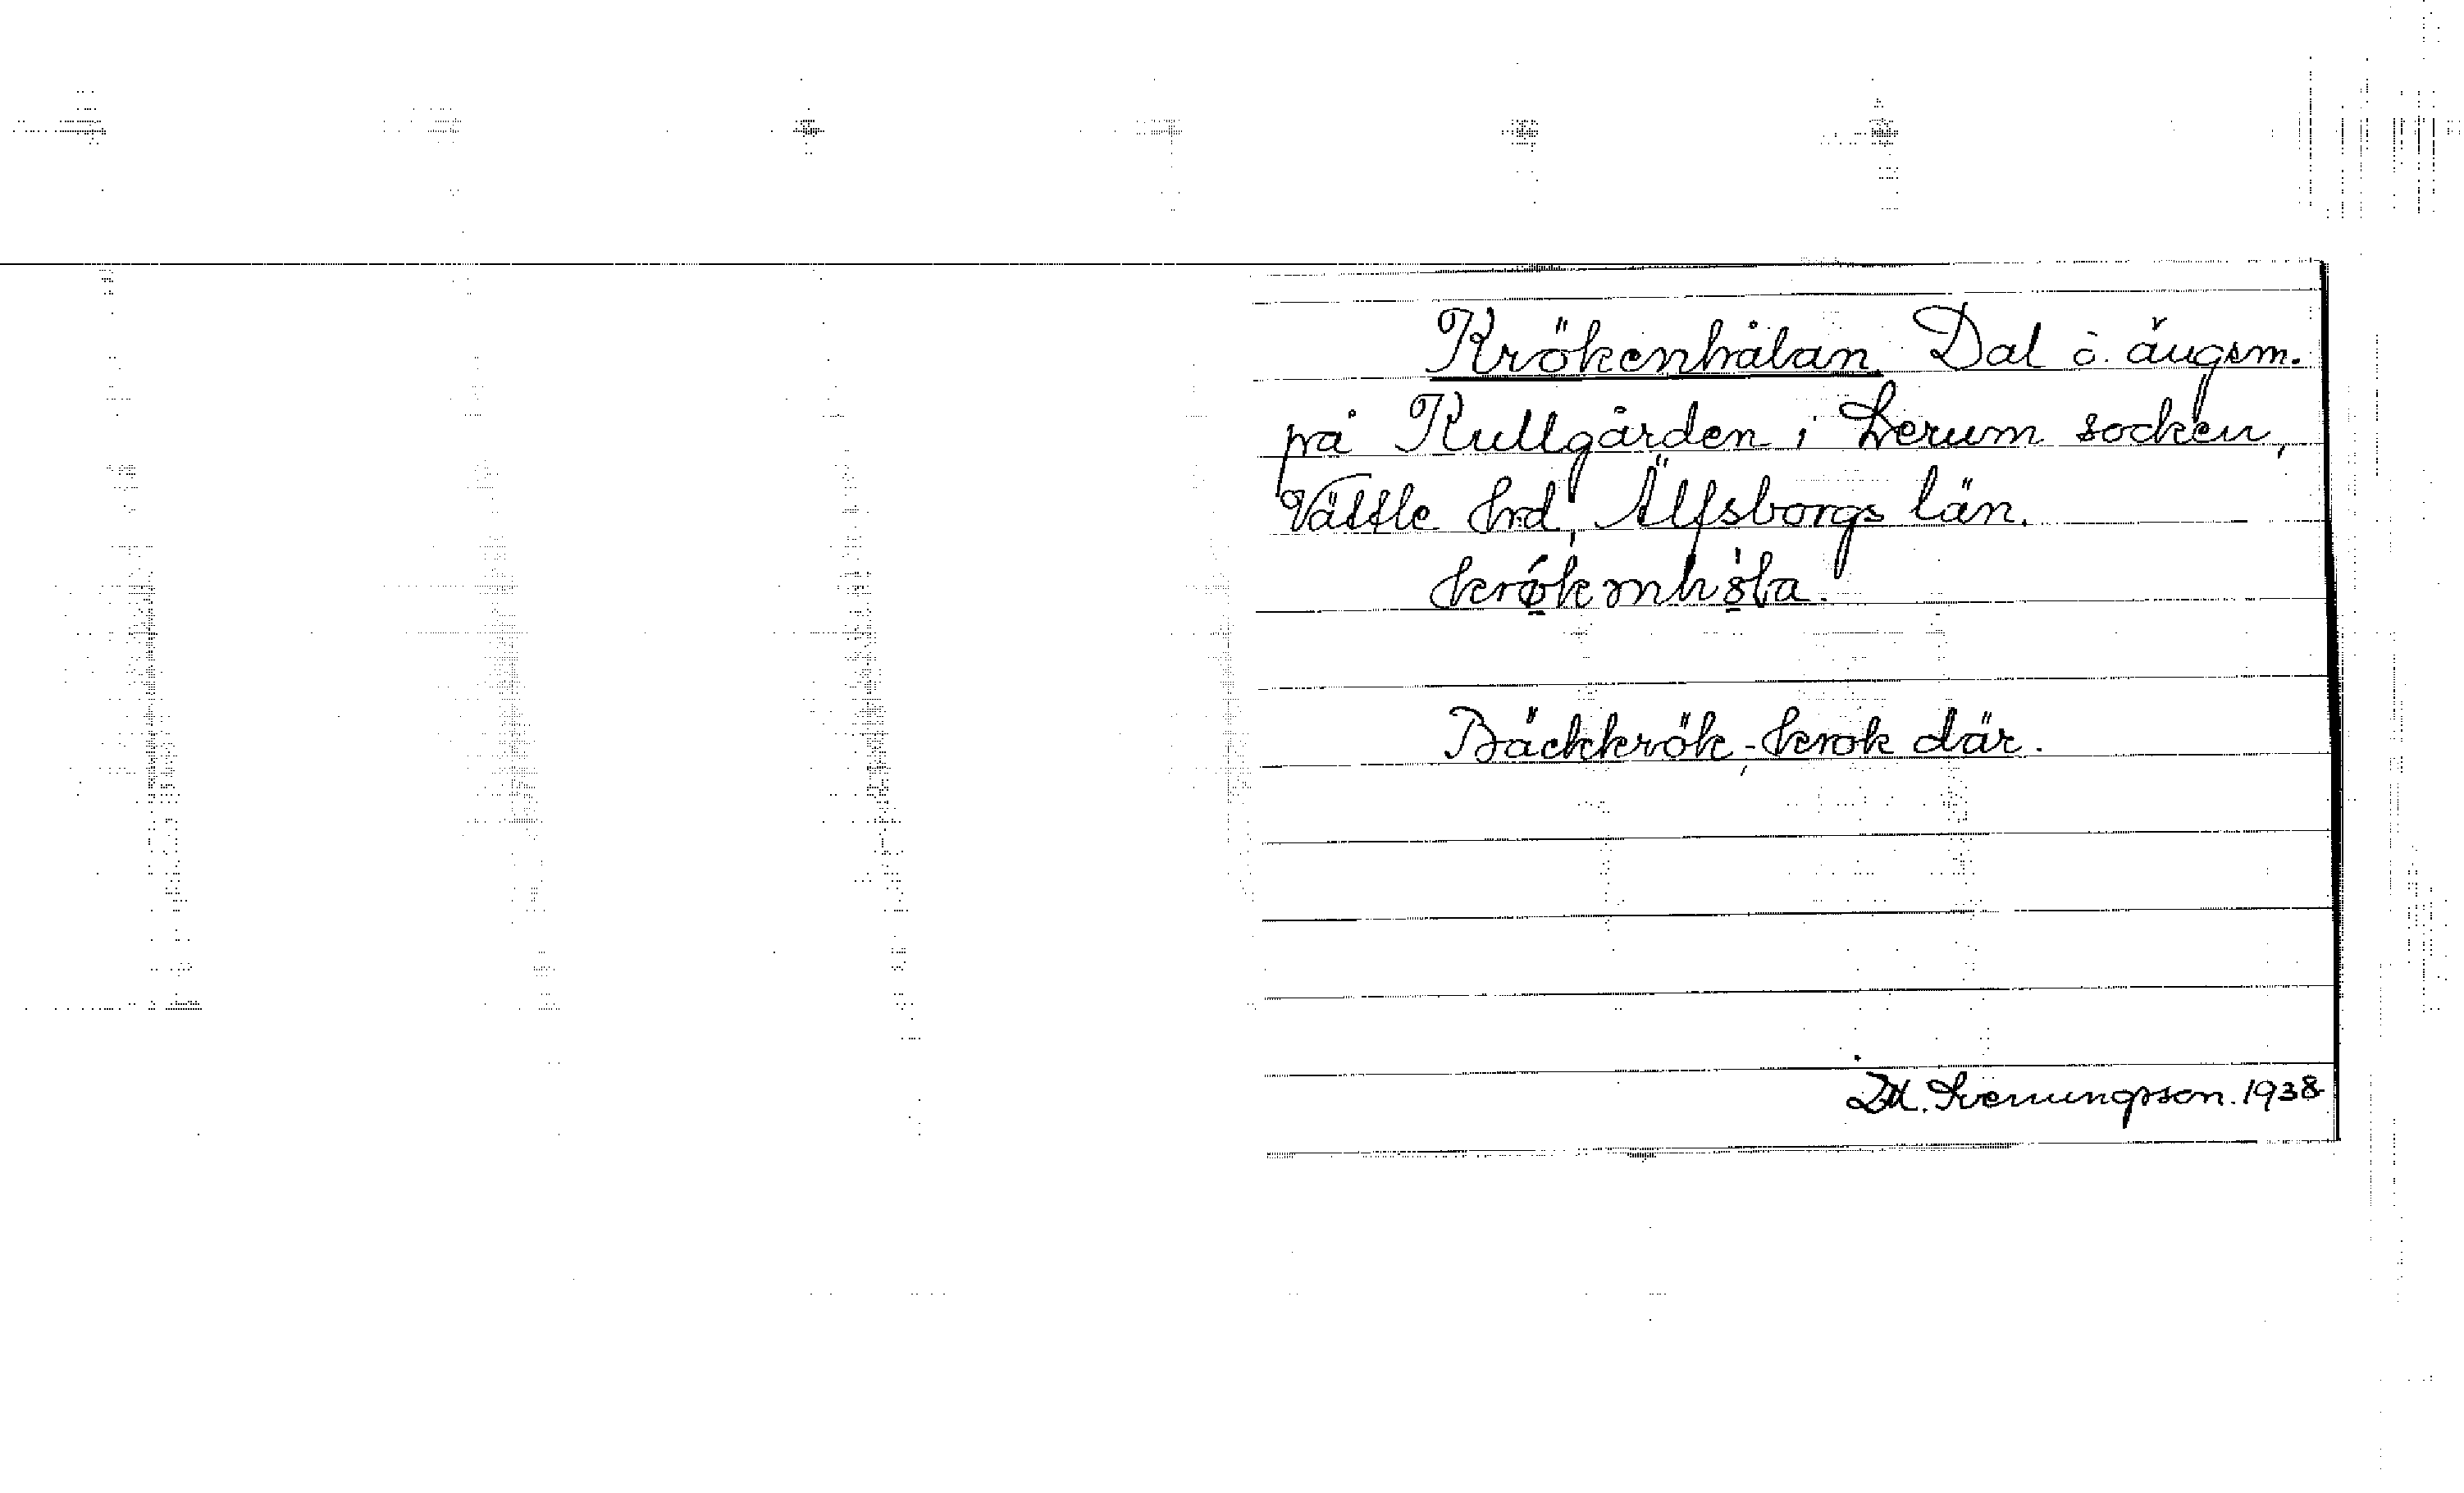 Krökenhålan. Dal o. ängsm.
på Kullgården i Lerum socken,
Vättle hrd, Älfsborgs län.
krök
Bäckkrök, -krok där.
1938